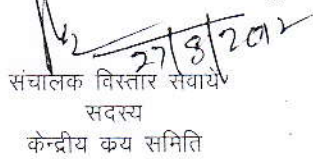 27/8/2012
संचालक विस्तार सेवायें
सदस्य
केन्द्रीय कय समिति